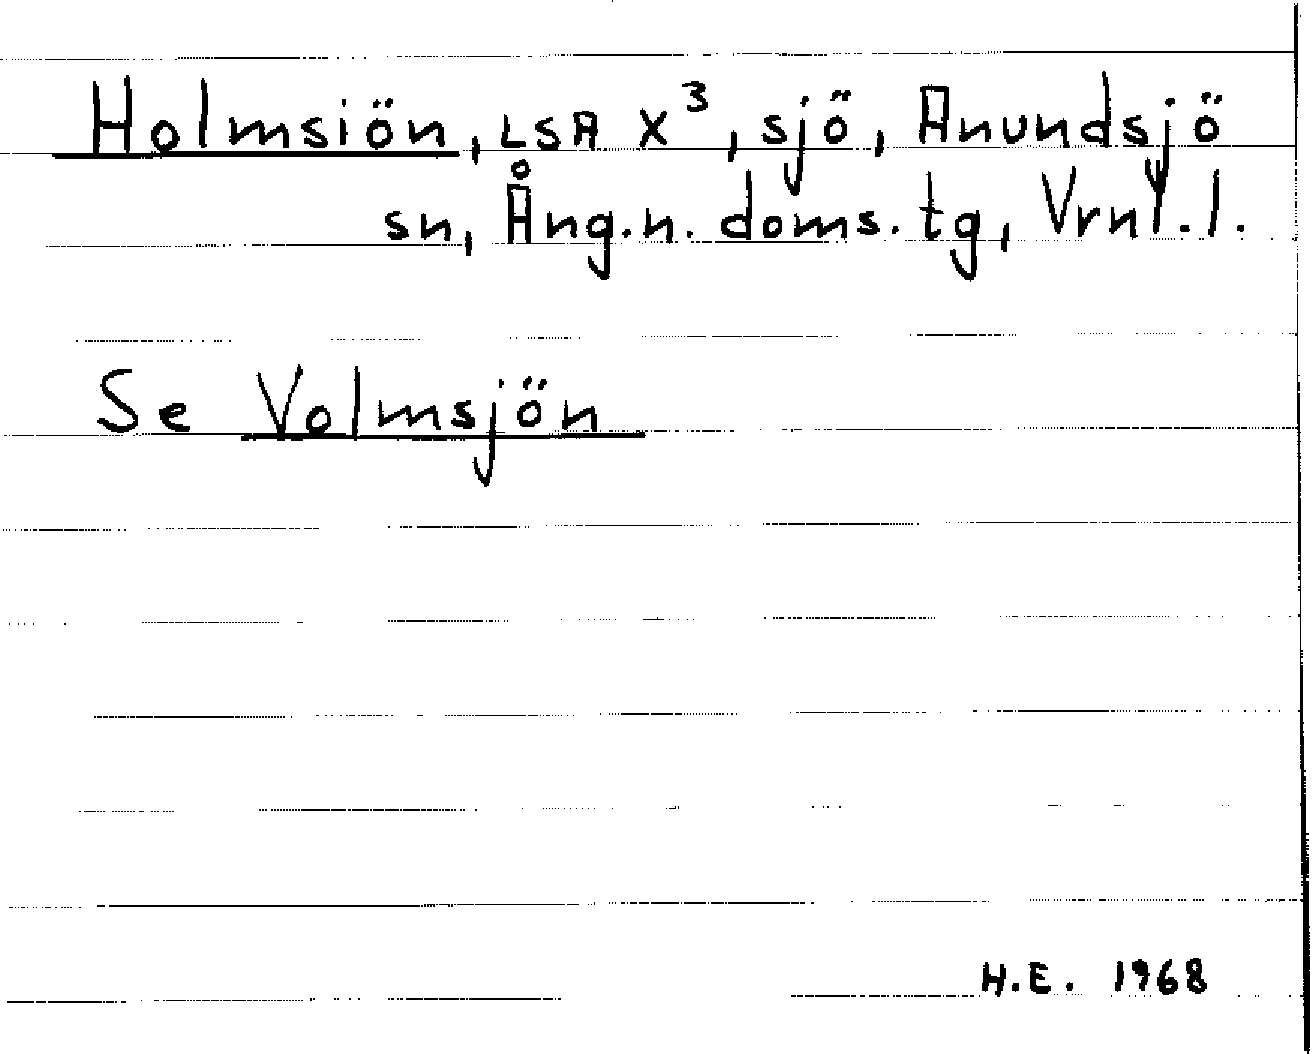 Holmsiön, LSA X³, sjö, Anundsjö
sn, Ång.n. doms.tg, Vrnl.l.
Se Volmsjön
H.E. 1968